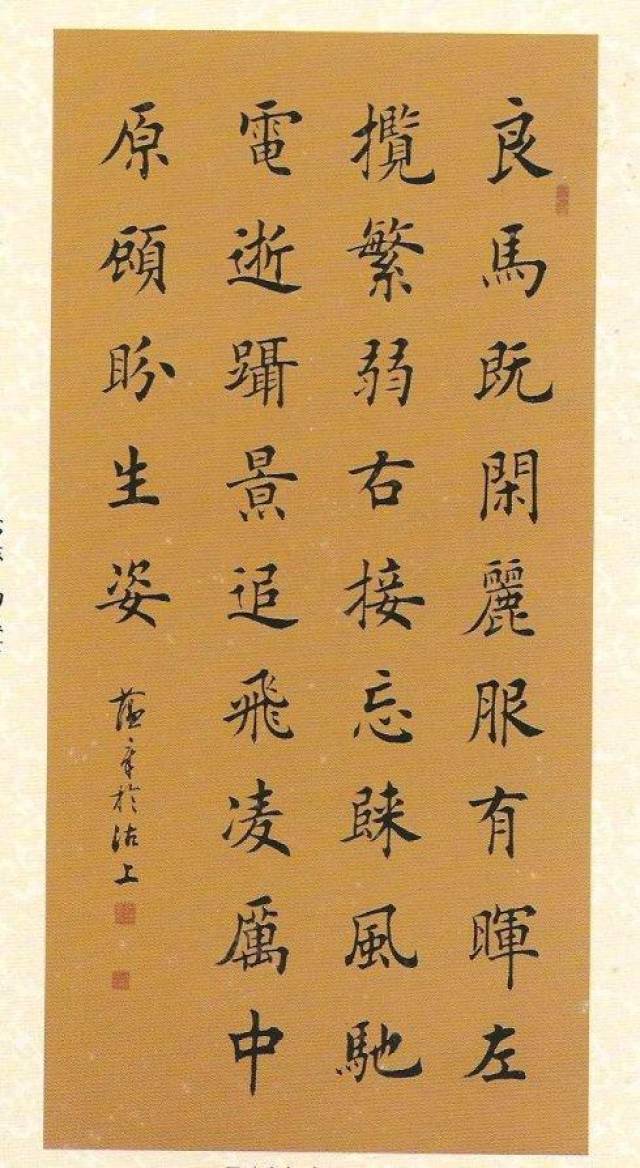 良馬既閑麗服有暉左
攬繁弱右接忘歸風馳
電逝躡景追飛凌厲中
原顧盼生姿
於沽上